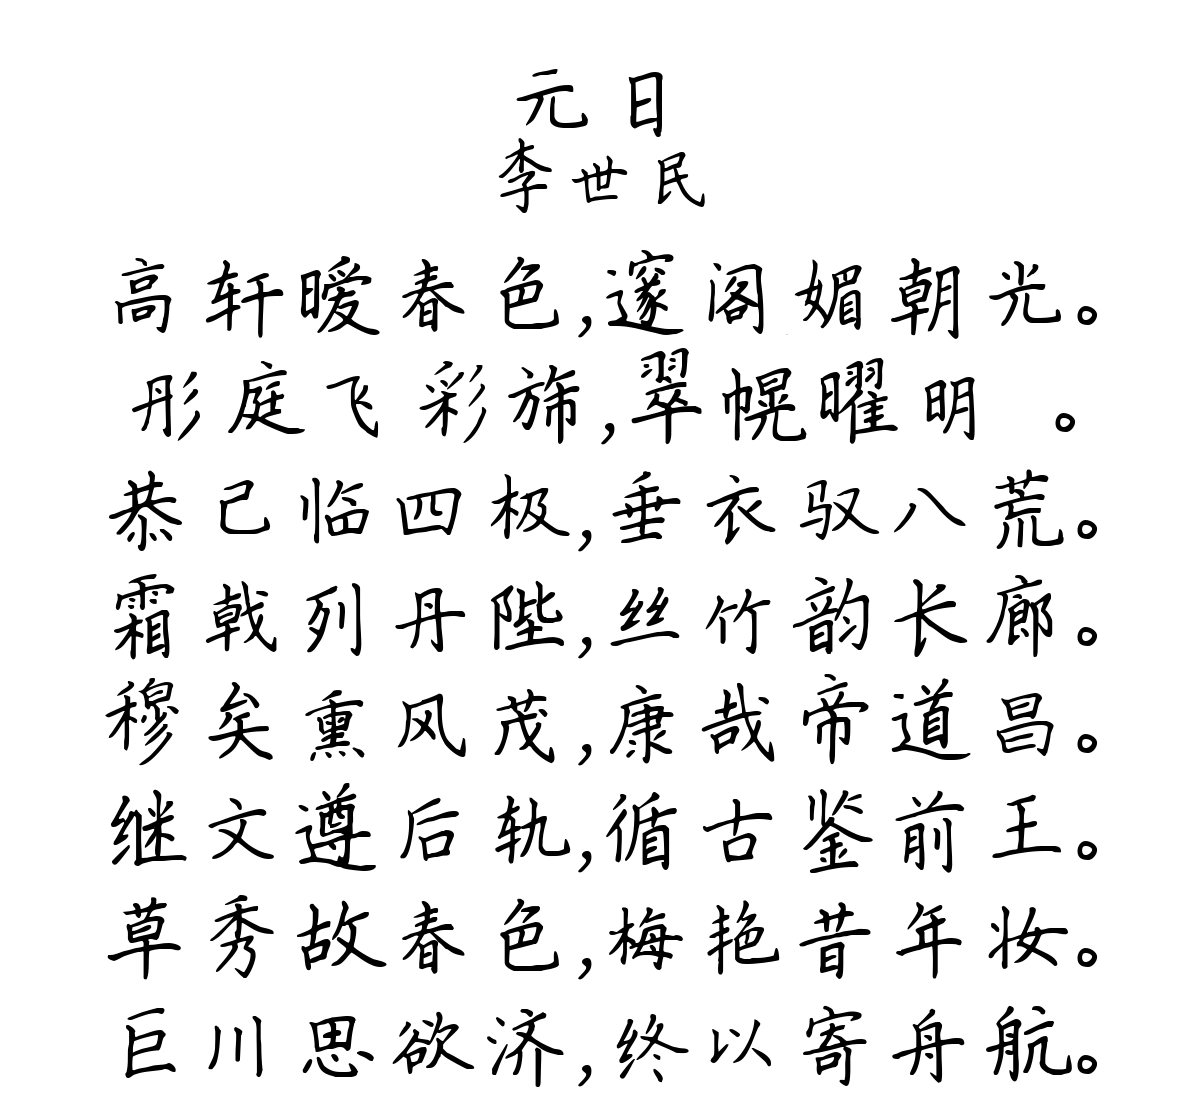 元日
李世民
高轩暧春色,邃阁媚朝光。
彤庭飞彩旆,翠幌曜明 。
恭己临四极,垂衣驭八荒。
霜戟列丹陛,丝竹韵长廊。
穆矣熏风茂,康哉帝道昌。
继文遵后轨,循古鉴前王。
草秀故春色,梅艳昔年妆。
巨川思欲济,终以寄舟航。